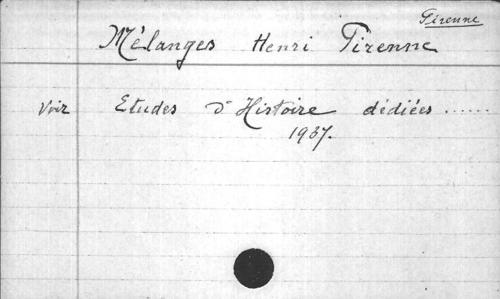 Pirenne
Mélanges Henri Pirenne
Voir Etudes d'Histoire dédiées ......
1937.